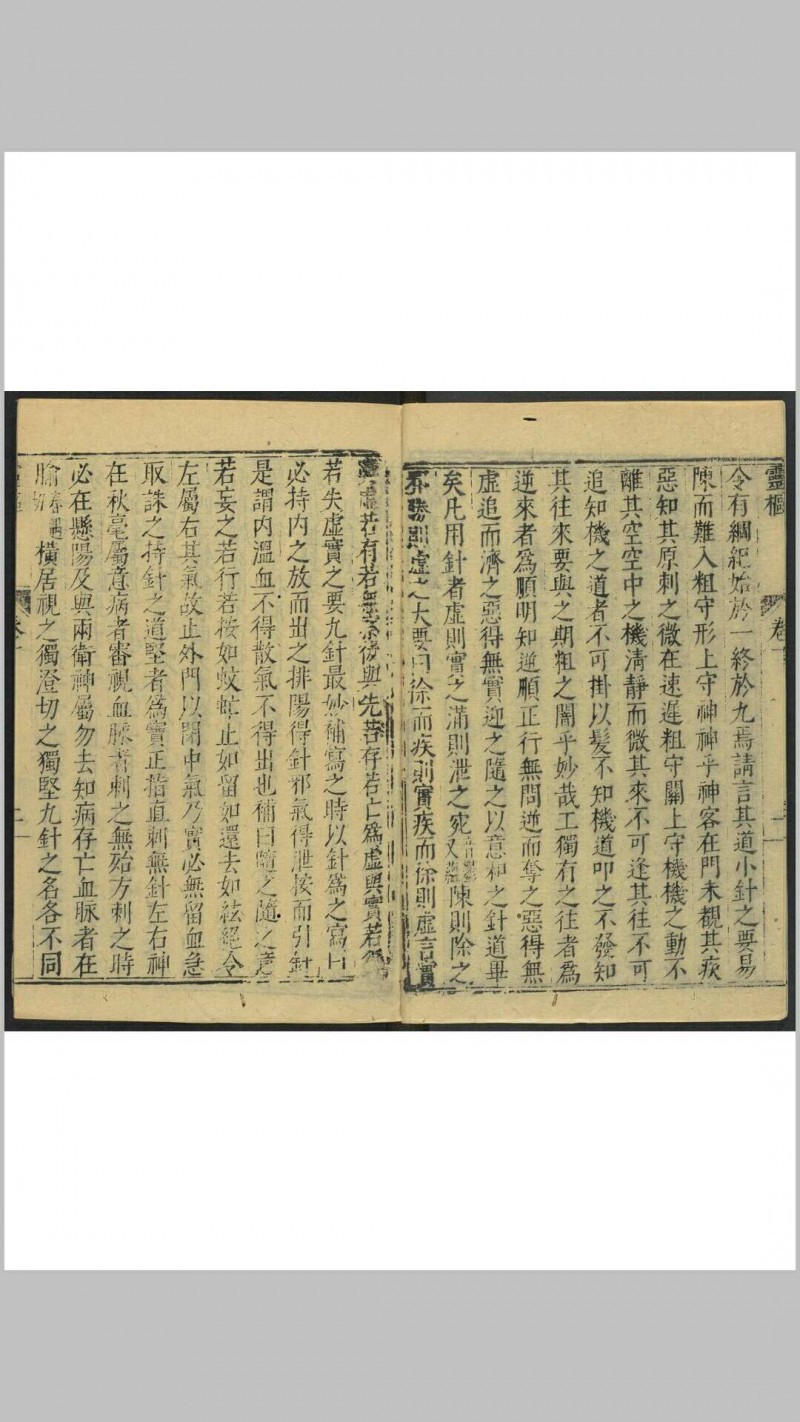 靈樞 卷一 二
令有綱紀始於一終於九焉請言其道小針之要易
陳而難入粗守形上守神神乎神客在門未覩其疾
惡知其原刺之微在速遲粗守關上守機機之動不
離其空空中之機清靜而微其來不可逢其往不可
追知機之道者不可掛以髮不知機道叩之不發知
其往來要與之期粗之闇乎妙哉工獨有之往者為
逆來者爲順明知逆順正行無問逆而奪之惡得無
虛追而濟之惡得無實迎之隨之以意和之針道畢
矣凡用針者虛則實之滿則泄之宛陳則除之
邪勝則虛之大要曰徐而疾則實疾而徐則虛言實
與虛若有若無察後與先若存若亡爲虛與實若得
若失虛實之要九針最妙補寫之時以針爲之寫曰
必持内之放而出之排陽得針邪氣得泄按而引針
是謂内溫血不得散氣不得出也補曰隨之隨之意
若妄之若行若按如蚊蝱止如留如還去如絃絕令
左屬右其氣故止外門以閉中氣乃實必無留血急
取誅之持針之道堅者爲實正指直刺無針左右神
在秋毫屬意病者審視血脉者刺之無殆方刺之時
必在懸陽及與兩衛神屬勿去知病存亡血脉者在
腧橫居視之獨澄切之獨堅九針之名各不同